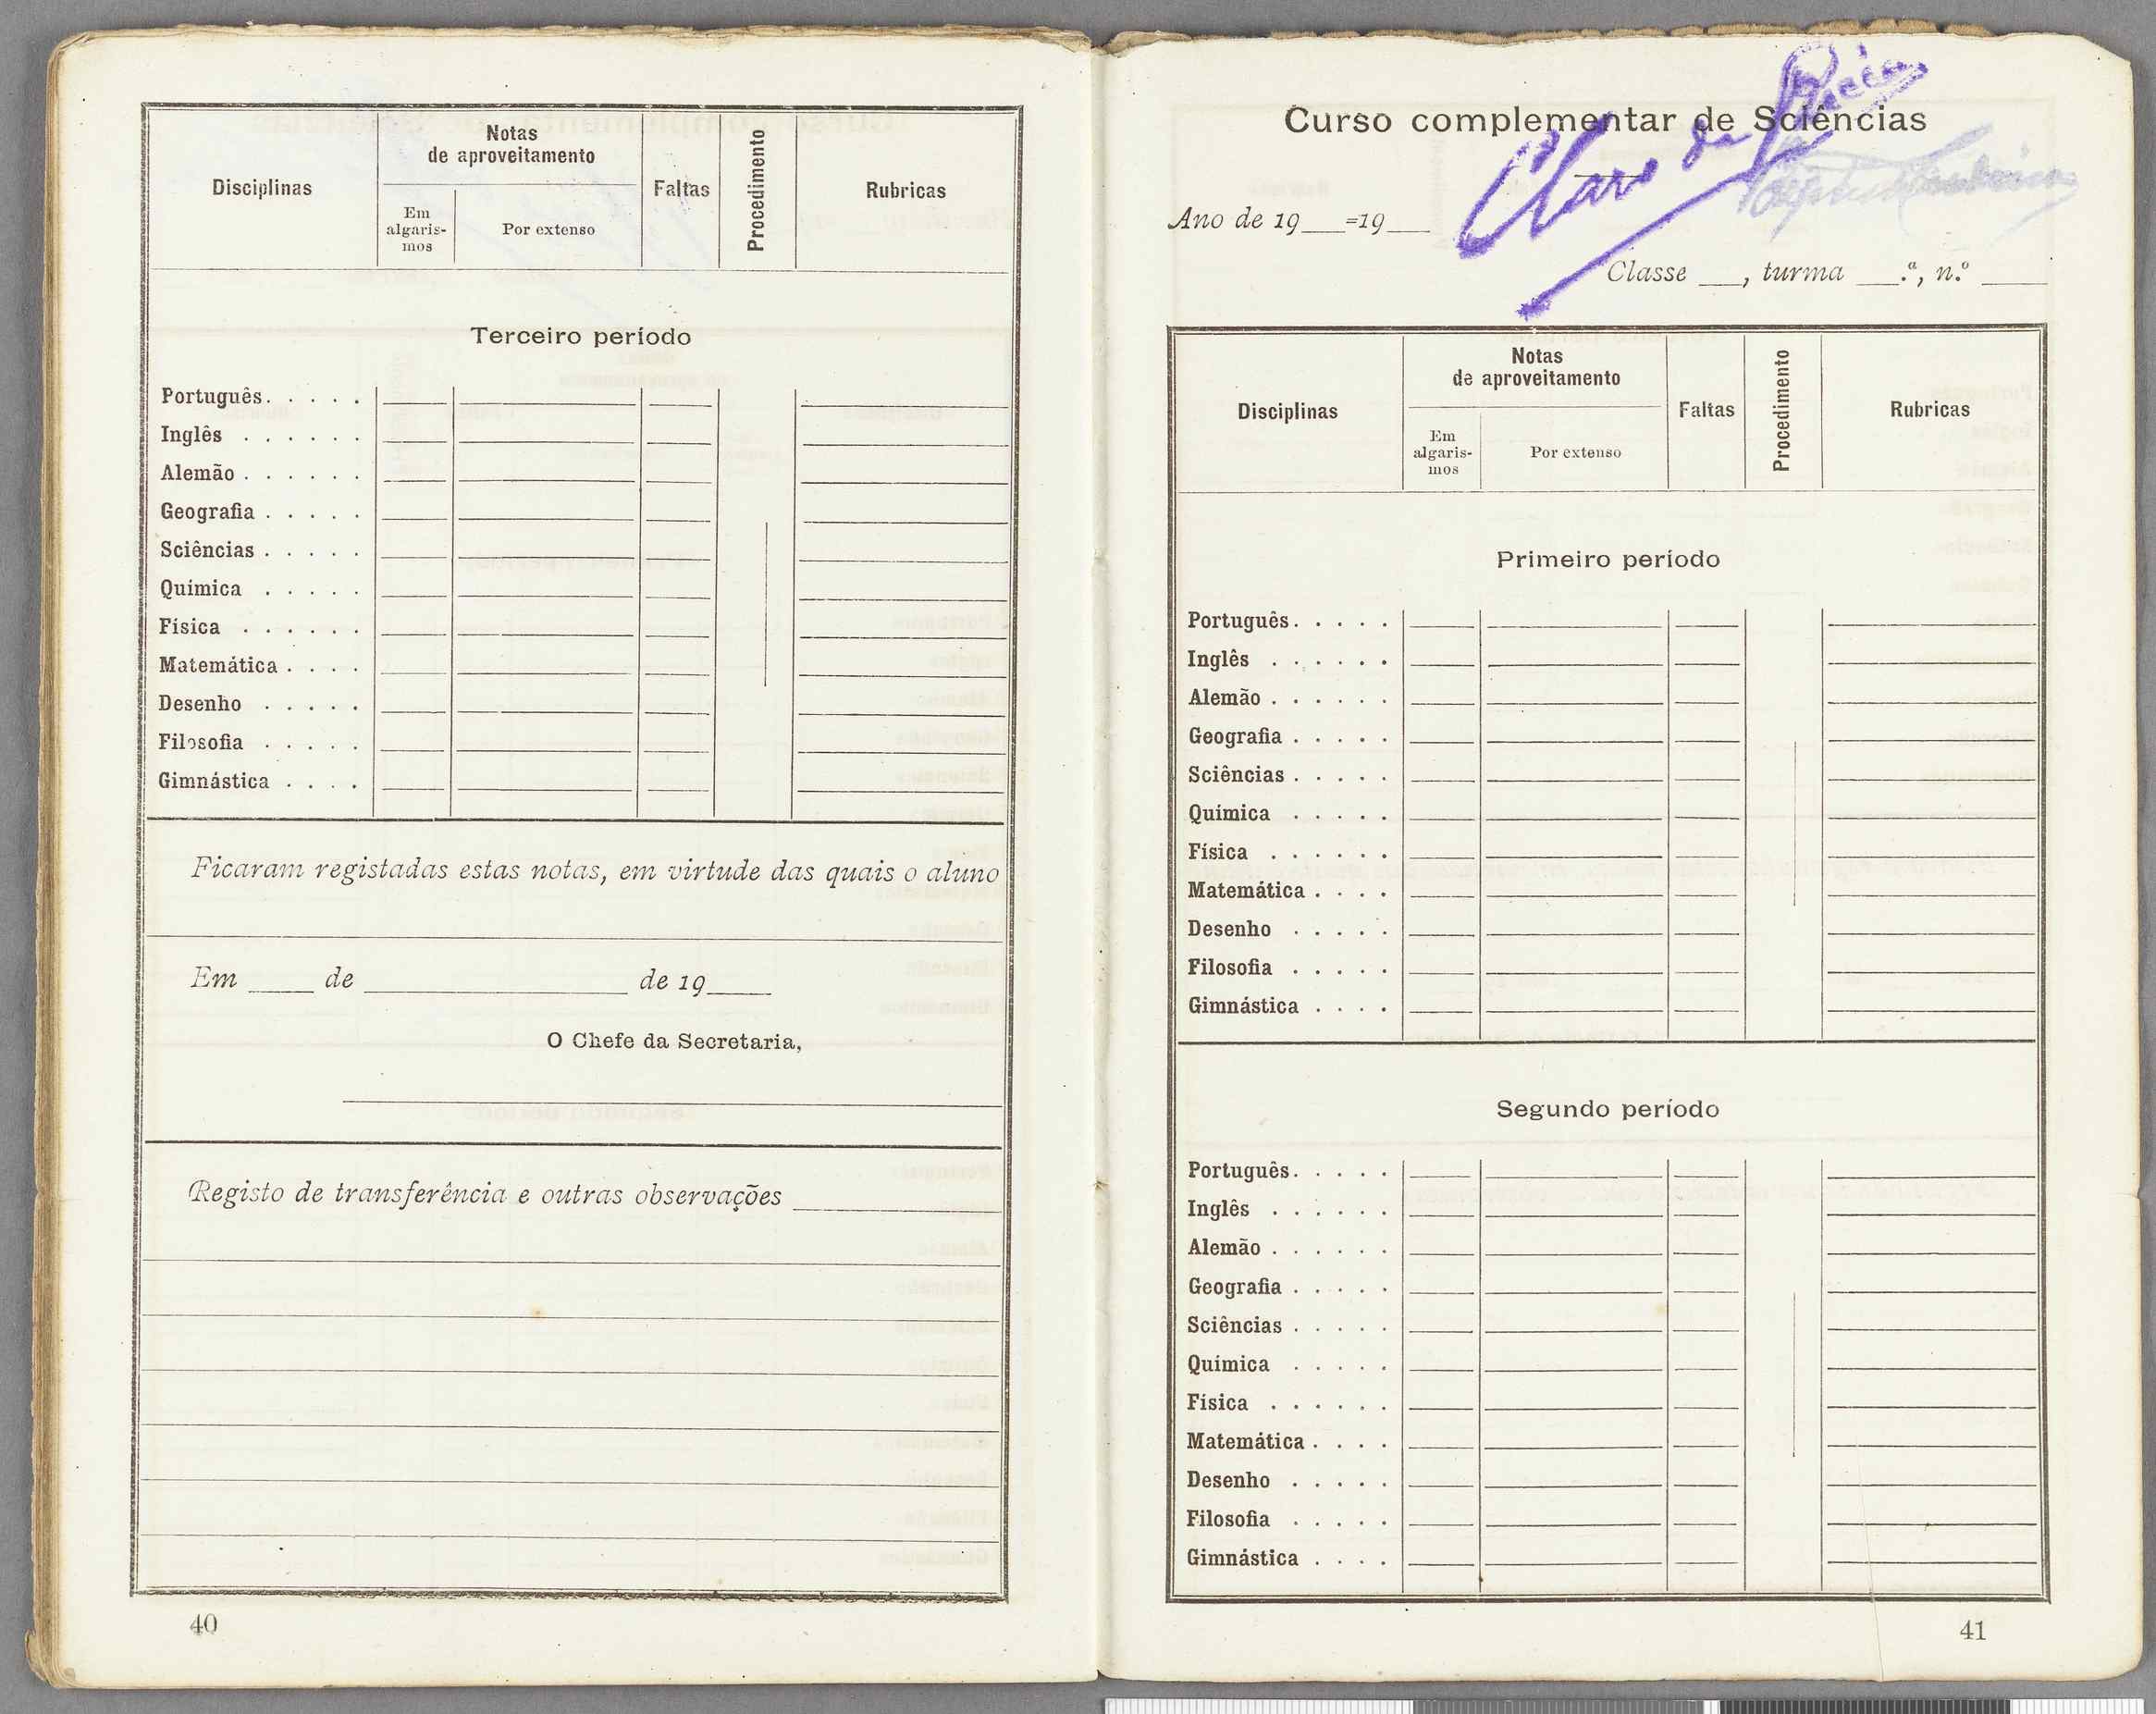 Disciplinas
Notas
de aproveitamento
Em
algaris-
mos
Por extenso
Faltas
Procedimento
Rubricas
Terceiro período
Português. . . . .
Inglês . . . . . .
Alemão . . . . . .
Geografia . . . . .
Sciências . . . . .
Química . . . . .
Física . . . . . .
Matemática . . . .
Desenho . . . . .
Filosofia . . . . .
Gimnástica . . . .
Ficaram registadas estas notas, em virtude das quais o aluno
Em ____ de ____ de 19____
O Chefe da Secretaria,
Registo de transferência e outras observações ____
40
Curso complementar de Sciências
Claro da
Ano de 19___=19___
Classe ___, turma ___.ª, n.º ____
Disciplinas
Notas
de aproveitamento
Em
algaris-
mos
Por extenso
Faltas
Procedimento
Rubricas
Primeiro período
Português. . . . .
Inglês . . . . . .
Alemão . . . . . .
Geografia . . . . .
Sciências . . . . .
Química . . . . .
Física . . . . . .
Matemática . . . .
Desenho . . . . .
Filosofia . . . . .
Gimnástica . . . .
Segundo período
Português. . . . .
Inglês . . . . . .
Alemão . . . . . .
Geografia . . . . .
Sciências . . . . .
Química . . . . .
Física . . . . . .
Matemática . . . .
Desenho . . . . .
Filosofia . . . . .
Gimnástica . . . .
41